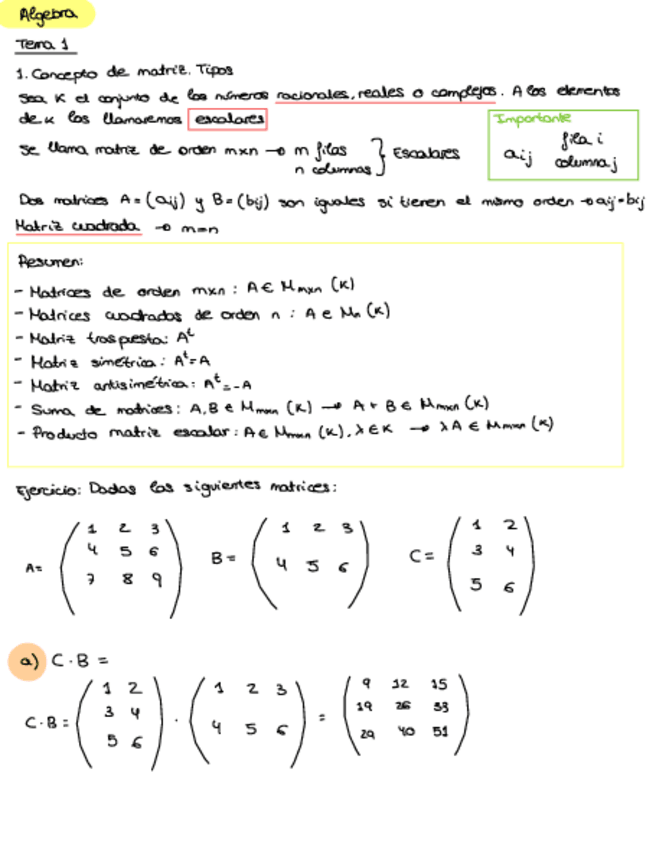 Algebra
Tema 1
1. Concepto de matriz. Tipos
Sea K el conjunto de los números racionales, reales o complejos. A los elementos
de K los llamaremos escalares
Importante
aij fila i
columna j
Se llama matriz de orden mxn → m filas
n columnas } Escalares
Dos matrices A = (aij) y B = (bij) son iguales si tienen el mismo orden → aij = bij
Matriz cuadrada → m=n
Resumen:
- Matrices de orden mxn : A ∈ Mmxn (K)
- Matrices cuadradas de orden n : A ∈ Mn (K)
- Matriz traspuesta: Aᵗ
- Matriz simétrica : Aᵗ=A
- Matriz antisimétrica : Aᵗ=-A
- Suma de matrices: A, B ∈ Mmxn (K) → A + B ∈ Mmxn (K)
- Producto matriz escalar : A ∈ Mmxn (K), λ ∈ K → λA ∈ Mmxn (K)
Ejercicio: Dadas las siguientes matrices:
A= ( 1 2 3
4 5 6
7 8 9 )
B = ( 1 2 3
4 5 6 )
C = ( 1 2
3 4
5 6 )
a) C · B =
C · B = ( 1 2
3 4
5 6 ) · ( 1 2 3
4 5 6 ) = ( 9 12 15
19 26 33
29 40 51 )